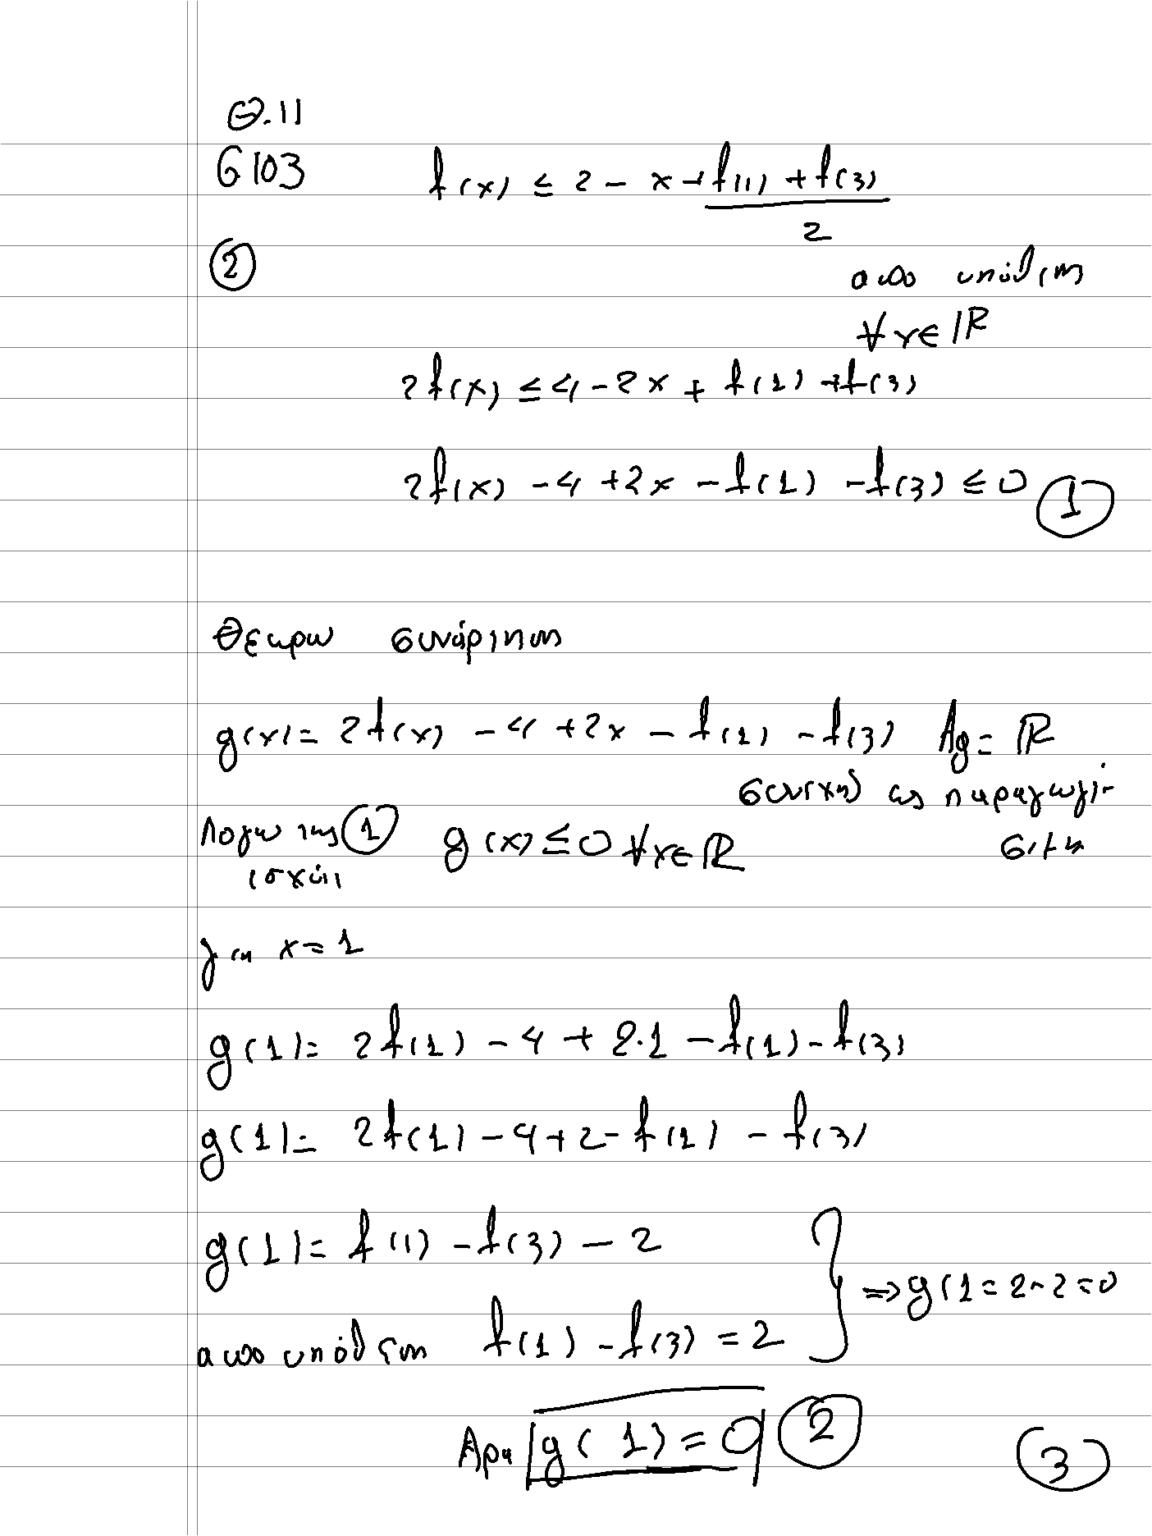 Θ.11
6103 f(x) ≤ 2 - x + (f(1) + f(3))/2
② από υπόθεση
∀x∈ℝ
2f(x) ≤ 4 - 2x + f(1) + f(3)
2f(x) - 4 + 2x - f(1) - f(3) ≤ 0 ①
Θεωρω συνάρτηση
g(x) = 2f(x) - 4 + 2x - f(1) - f(3) Ag = ℝ
συνεχής ως παραγωγί-
σιμη
Λογω της ① g(x) ≤ 0 ∀x∈ℝ
ισχύει
για x = 1
g(1) = 2f(1) - 4 + 2·1 - f(1) - f(3)
g(1) = 2f(1) - 4 + 2 - f(1) - f(3)
g(1) = f(1) - f(3) - 2
⇒ g(1 = 2 - 2 = 0
από υπόθεση f(1) - f(3) = 2
Αρα g(1) = 0 ②
③